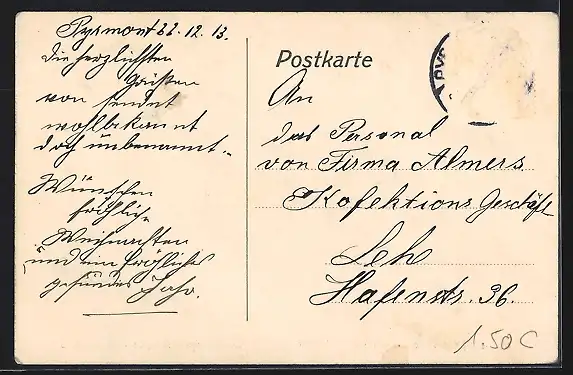 Pyrmont 22.12.13.
die herzlichsten
Grüßen
von sendet
wohlbekannt
doch unbenannt.
Wünschen
fröhliche
Weihnachten
und ein fröhliches
gesundes Jahr.
Postkarte
An
das Personal
von Firma Almers
Kofektions Geschäft
Leh
Hafenstr. 36.
1.50 C